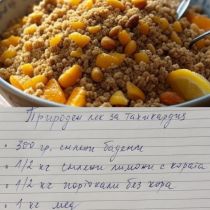 Природен лек за Тахикардия
• 300 гр. смлени бадеми
• 1/2 кг смлени лимони с кората
• 1/2 кг портокали без кора
• 1 кг мед